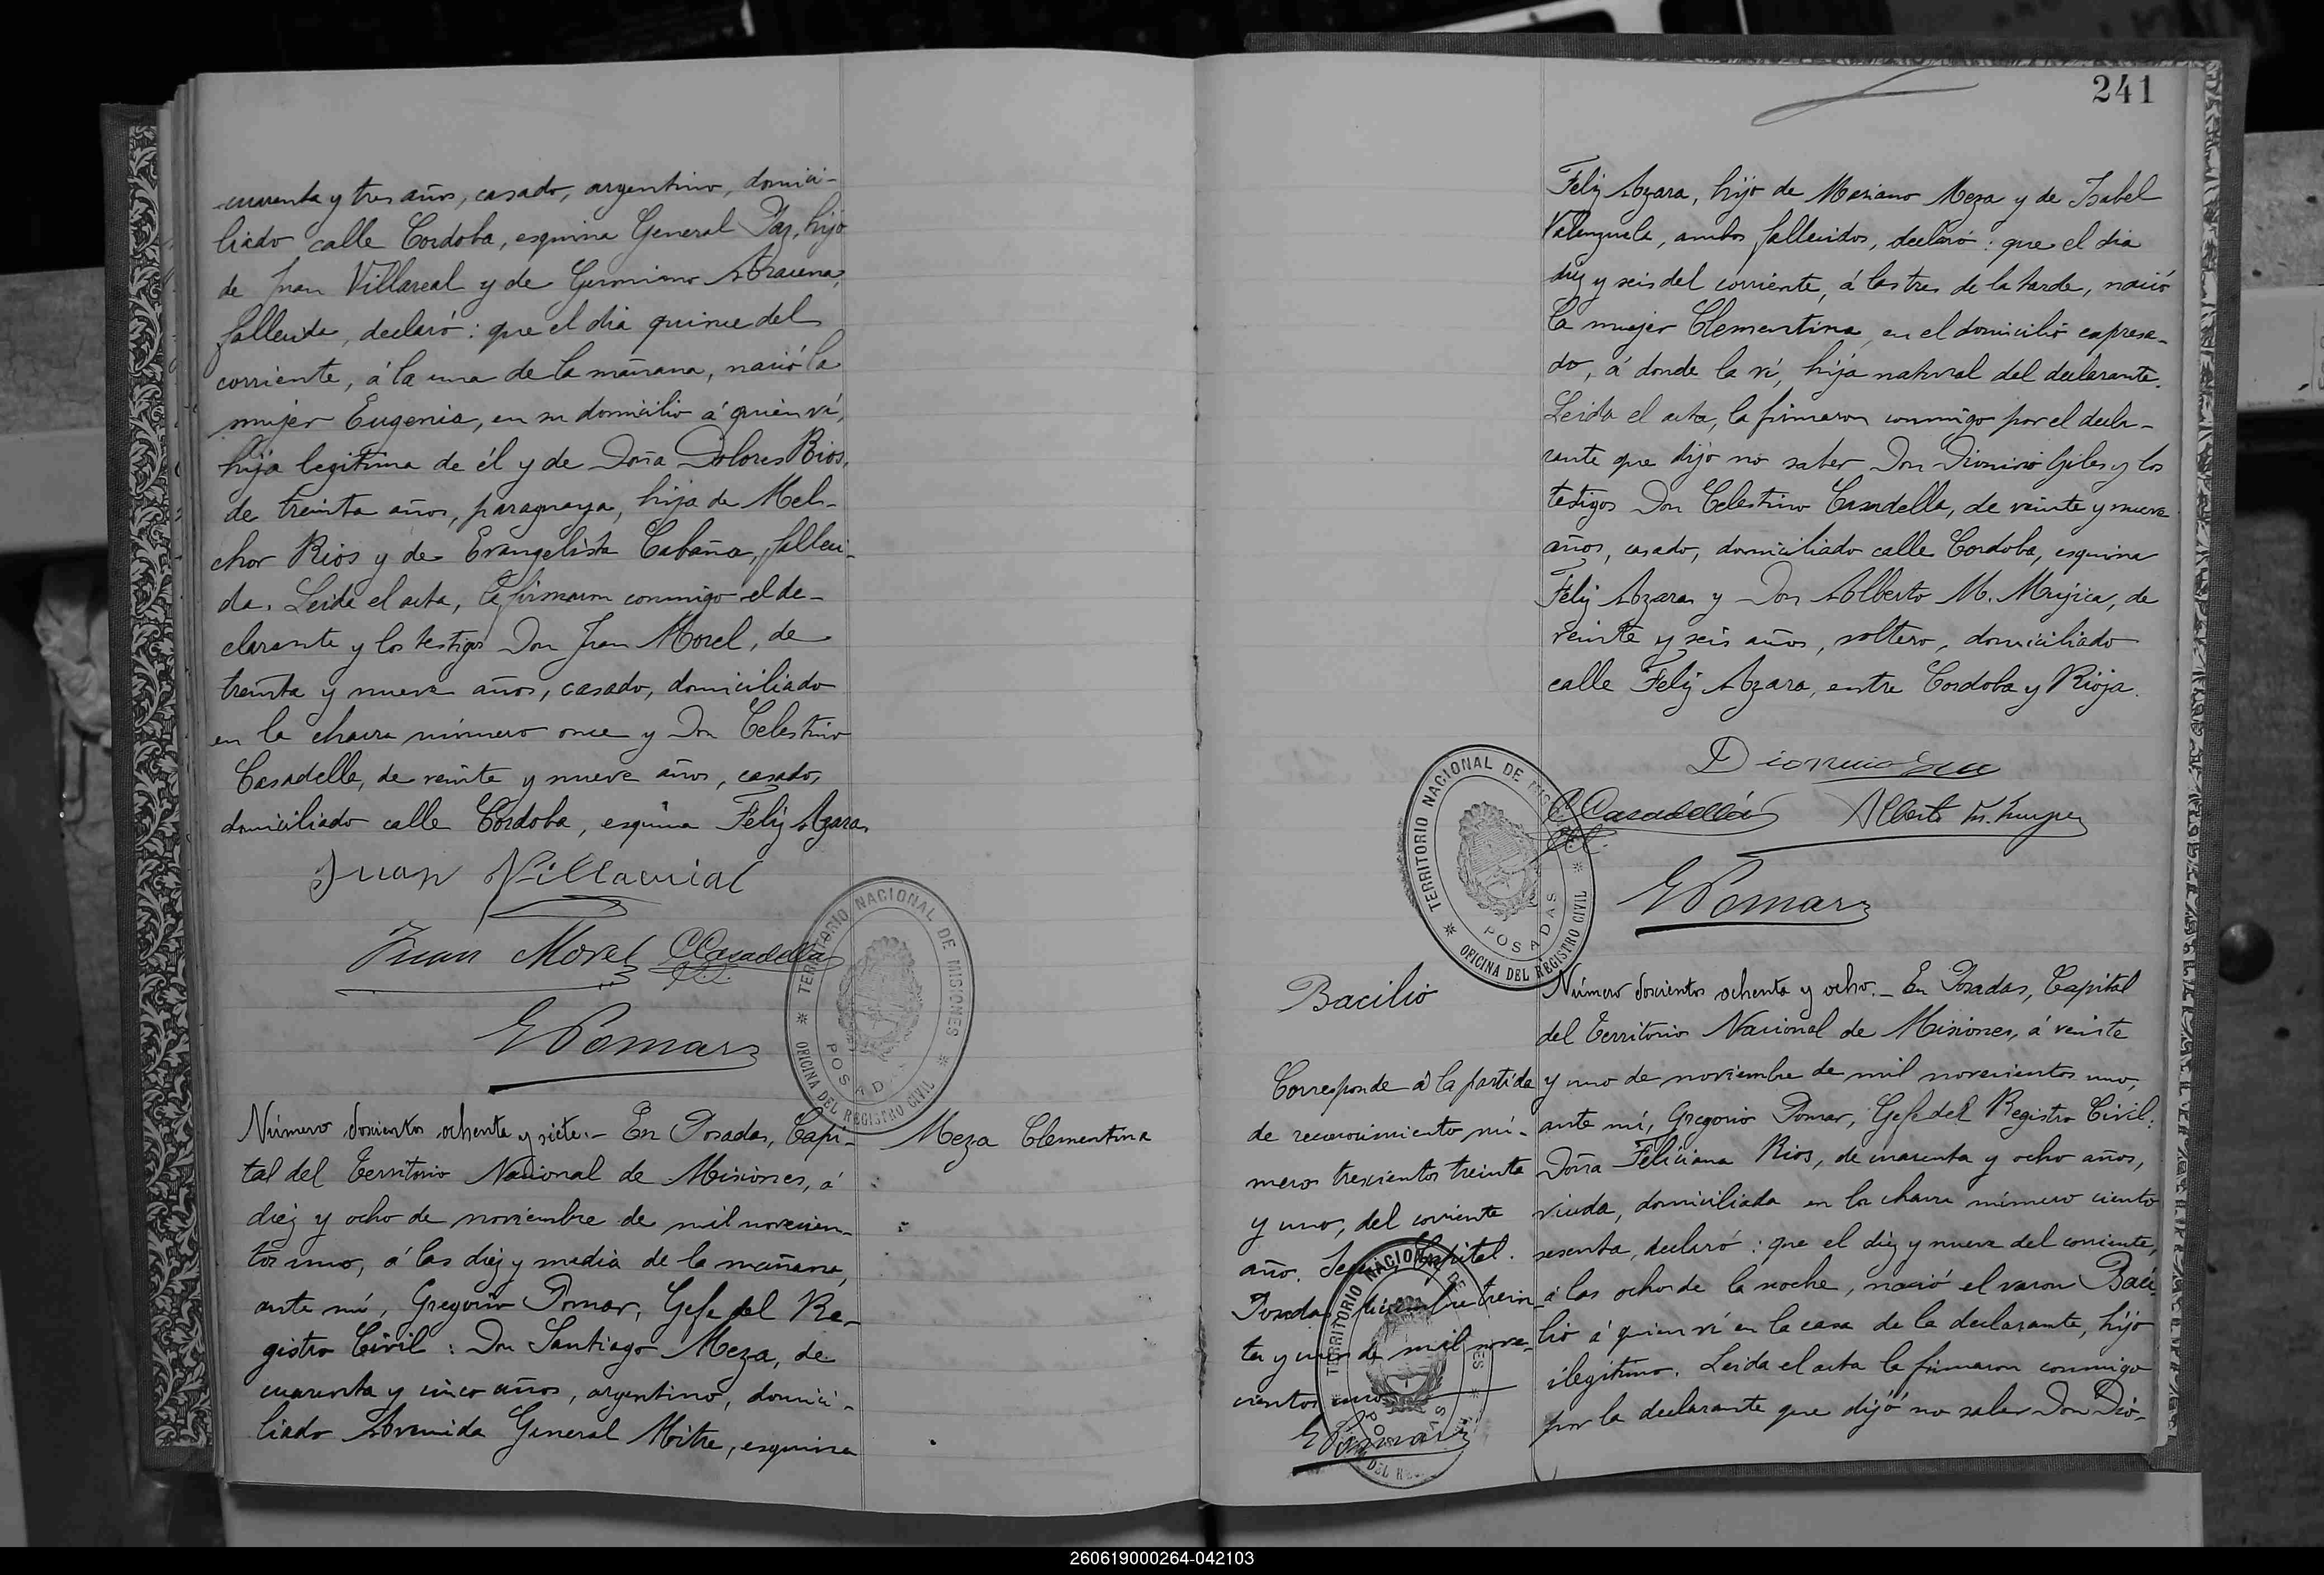 cuarenta y tres años, casado, argentino, domici-
liado calle Cordoba, esquina General Paz, hijo
de Juan Villareal y de Geronima Aracena,
fallecida, declaró: que el dia quince del
corriente, á la una de la mañana, nació la
mujer Eugenia, en su domicilio á quien ví,
hija legitima de él y de Doña Dolores Rios,
de treinta años, paraguaya, hija de Mel-
chor Rios y de Evangelista Cabaña, falleci-
da. Leida el acta, la firmaron conmigo el de-
clarante y los testigos Don Juan Morel, de
treinta y nueve años, casado, domiciliado
en la chacra número once y Don Celestino
Casadella, de veinte y nueve años, casado,
domiciliado calle Cordoba, esquina Feliz Azara.
Juan Villarrial
Juan Morel CCasadella
GPomar
TERRITORIO NACIONAL DE MISIONES
POSADAS
OFICINA DEL REGISTRO CIVIL
Meza Clementina
Número doscientos ochenta y siete.- En Posadas, Capi-
tal del Territorio Nacional de Misiones, á
diez y ocho de noviembre de mil novecien-
tos uno, á las diez y media de la mañana,
ante mí, Gregorio Pomar, Gefe del Re-
gistro Civil: Don Santiago Meza, de
cuarenta y cinco años, argentino, domici-
liado Avenida General Mitre, esquina
241
Feliz Azara, hijo de Mariano Meza y de Isabel
Valenzuela, ambos fallecidos, declaró: que el dia
diez y seis del corriente, á las tres de la tarde, nació
la mujer Clementina, en el domicilio expresa-
do, á donde la ví, hija natural del declarante.
Leida el acta, la firmaron conmigo por el decla-
rante que dijo no saber Don Dionisio Giles y los
testigos Don Celestino Casadella, de veinte y nueve
años, casado, domiciliado calle Cordoba, esquina
Feliz Azara y Don Alberto M. Mujica, de
veinte y seis años, soltero, domiciliado
calle Feliz Azara, entre Cordoba y Rioja.
Dionicio
CCasadella Alberto M.
GPomar
TERRITORIO NACIONAL DE MISIONES
POSADAS
OFICINA DEL REGISTRO CIVIL
Bacilio
Corresponde á la partida
de reconocimiento nú-
mero trescientos treinta
y uno, del corriente
año. Capital.
Posadas, diciembre trein-
ta y uno de mil nove-
cientos uno
GPomar
TERRITORIO NACIONAL DE
Número doscientos ochenta y ocho.- En Posadas, Capital
del Territorio Nacional de Misiones, á veinte
y uno de noviembre de mil novecientos uno,
ante mí, Gregorio Pomar, Gefe del Registro Civil:
Doña Feliciana Rios, de cuarenta y ocho años,
viuda, domiciliada en la chacra número ciento
sesenta, declaró: que el diez y nueve del corriente,
á las ocho de la noche, nació el varon Baci-
lio á quien ví en la casa de la declarante, hijo
ilegitimo. Leida el acta la firmaron conmigo
por la declarante que dijó no saber Don Dio-
260619000264-042103